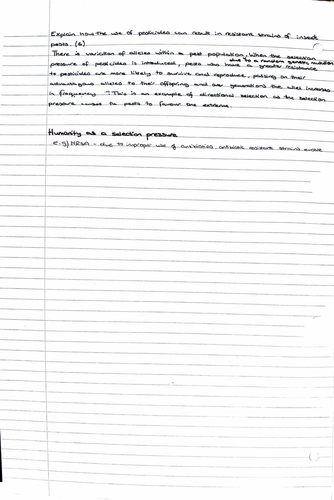 Explain how the use of pesticides can result in resistant strains of insect
pests. (6)
There is variation of alleles within a pest population. When the selection
due to a random genetic mutation
pressure of pesticides is introduced, pests who have a greater resistance
to pesticides are more likely to survive and reproduce, passing on their
advantageous alleles to their offspring and over generations the allel increases
in frequency. This is an example of directional selection as the selection
pressure causes the pests to favour the extreme.
Humanity as a selection pressure
e.g) MRSA - due to improper use of antibiotics, antibiotic resistant strains evolve